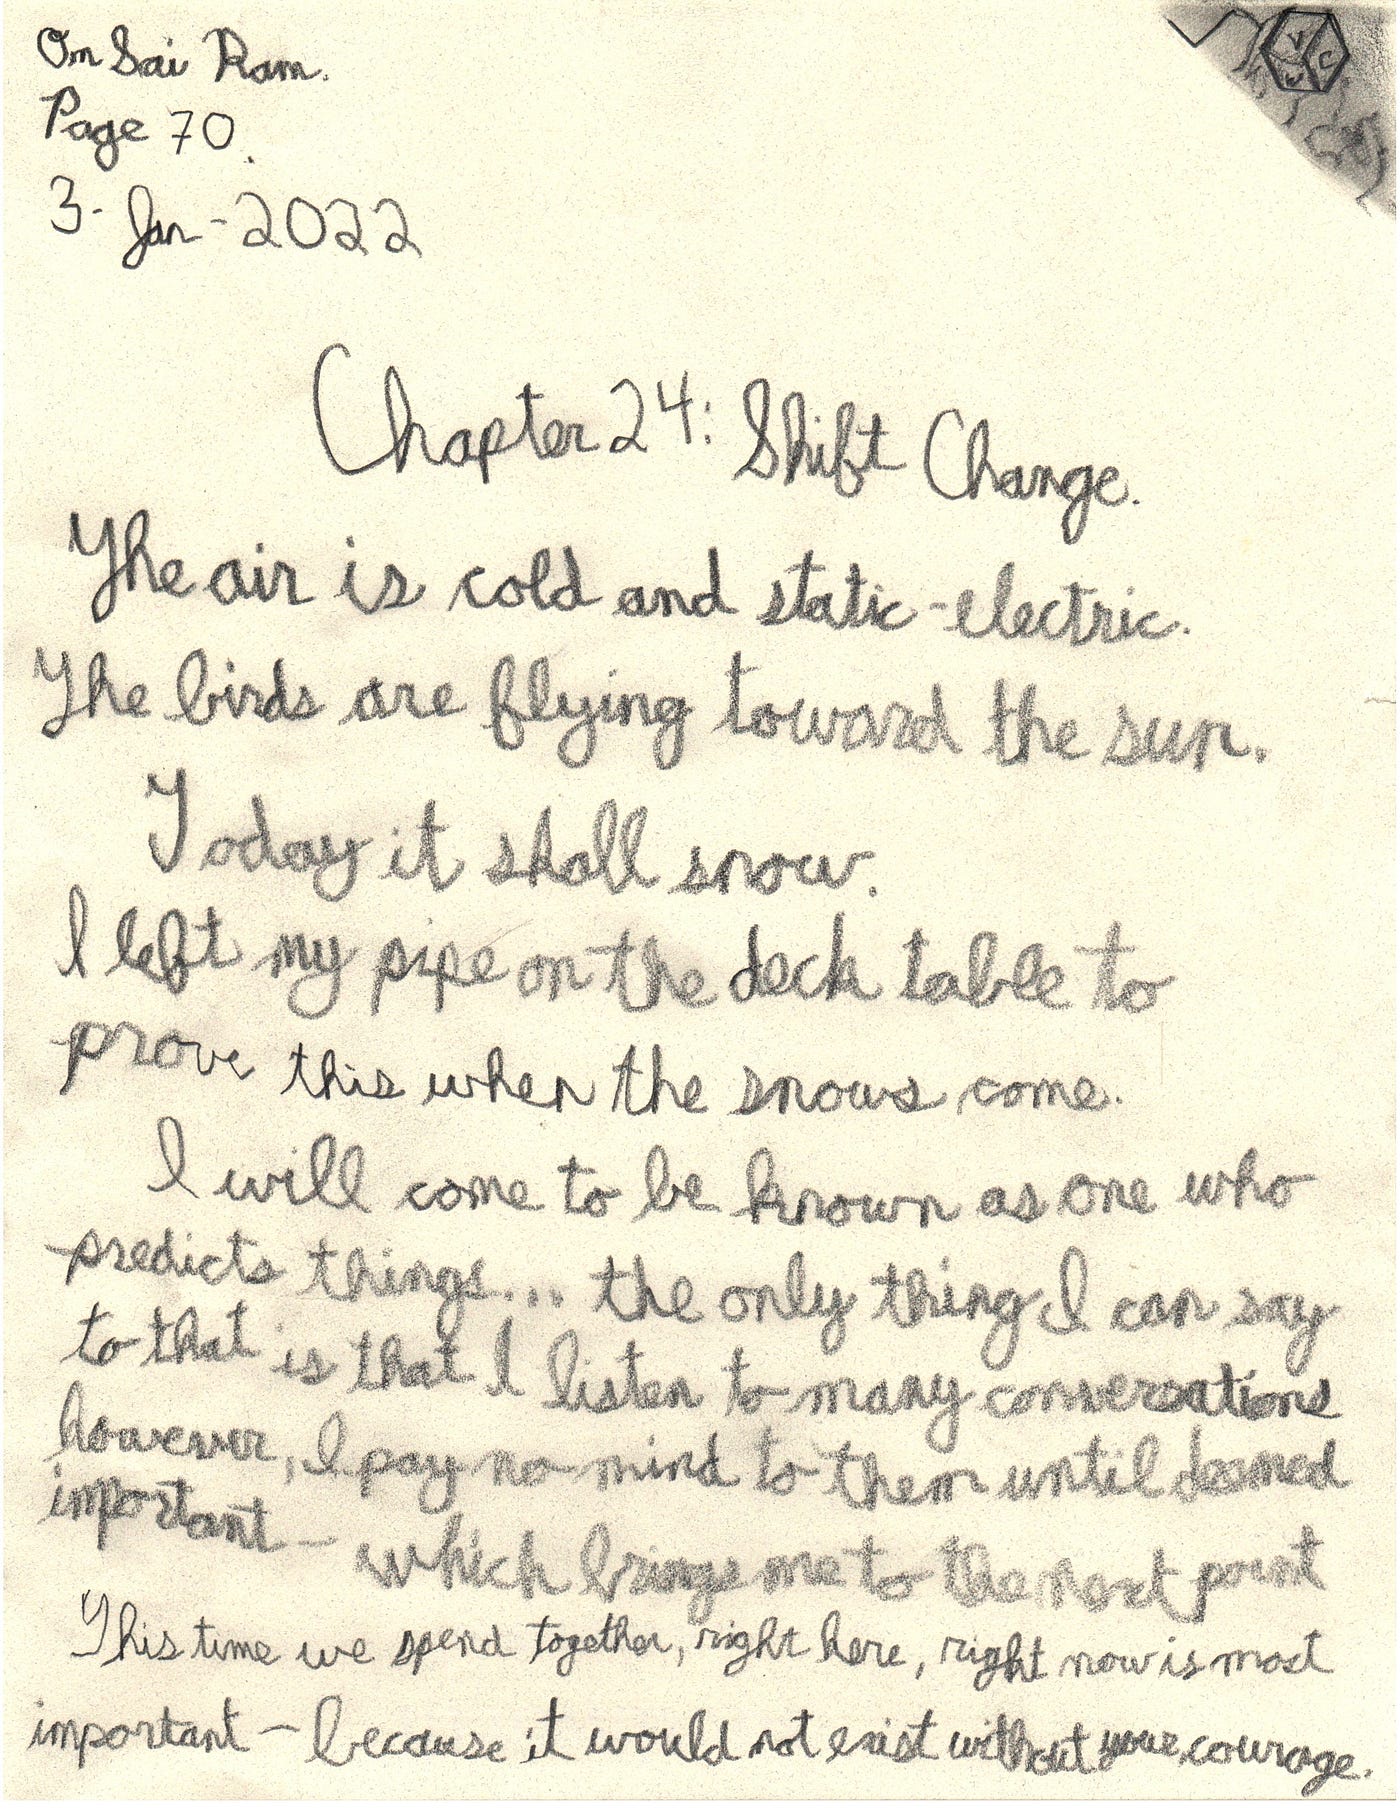 Om Sai Ram.
Page 70.
3-Jan-2022
V C
W
Chapter 24: Shift Change.
The air is cold and static-electric.
The birds are flying toward the sun.
Today it shall snow.
I left my pipe on the deck table to
prove this when the snows come.
I will come to be known as one who
predicts things... the only thing I can say
to that is that I listen to many conversations
however, I pay no mind to them until deemed
important - which brings me to the next point
This time we spend together, right here, right now is most
important - because it would not exist without your courage.